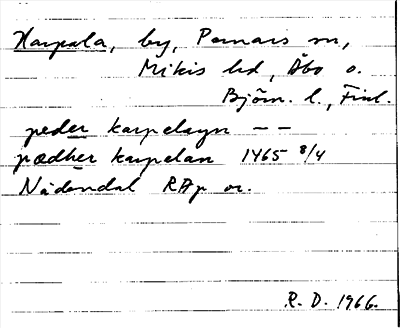 Karpala, by, Pemars sn,
Mikis hd, Åbo o.
Björn. l., Finl.
peder karpelayn – –
pædher karpelan 1465 8/4
Nådendal RAp or.
R. D. 1966.